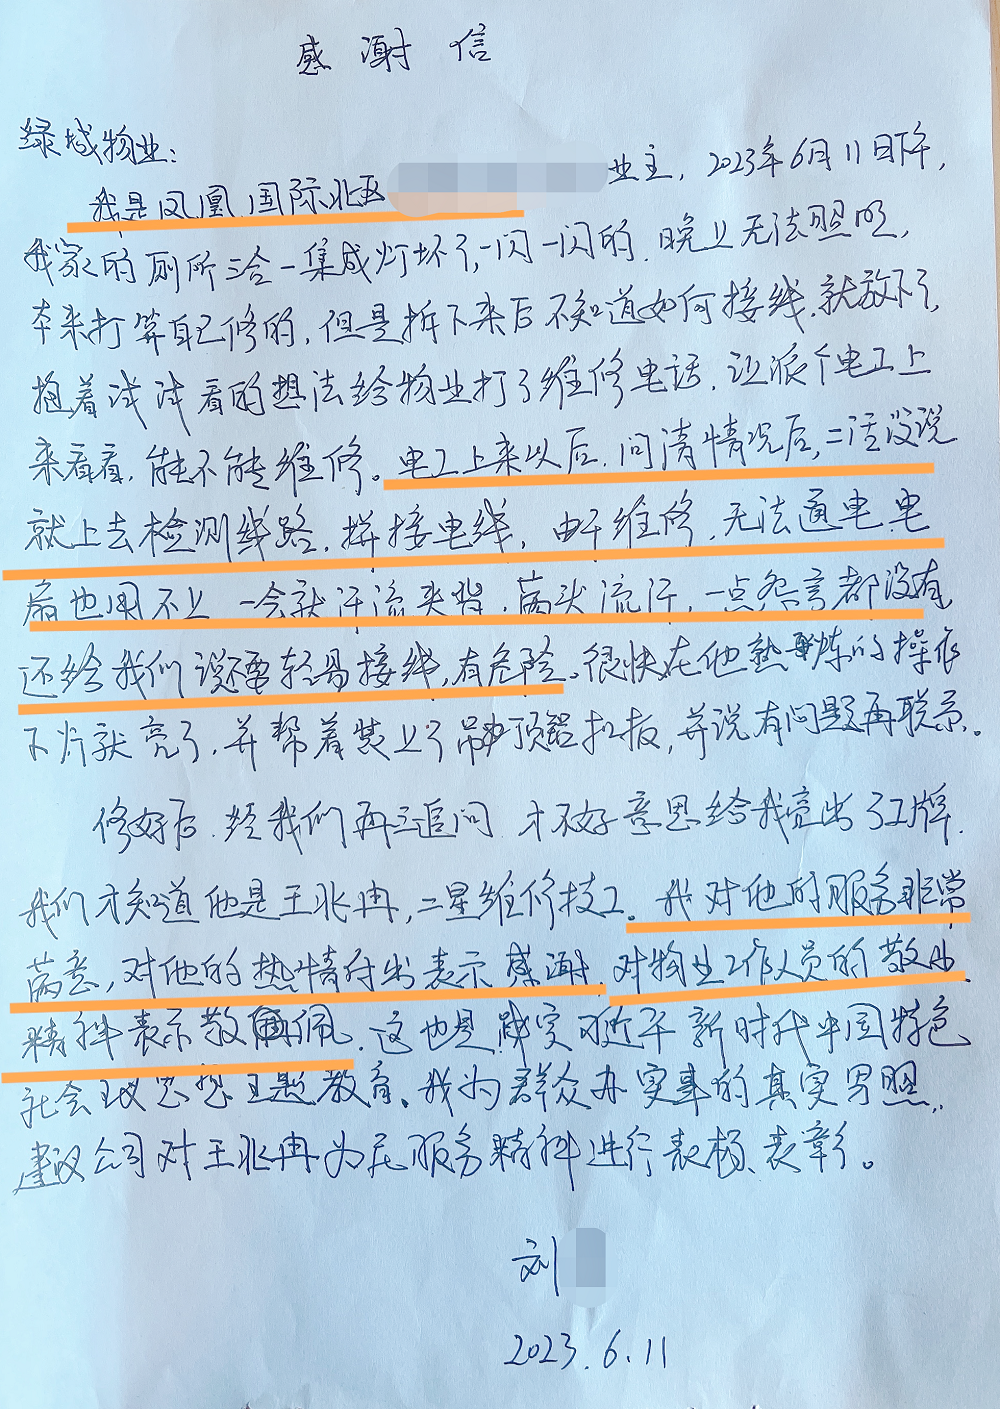 感谢信
绿城物业：
我是凤凰国际北区业主，2023年6月11日下午，
我家的厕所三合一集成灯坏了，一闪一闪的，晚上无法照明，
本来打算自己修的，但是拆下来后不知道如何接线，就放下了，
抱着试试看的想法给物业打了维修电话，让派个电工上
来看看，能不能维修。电工上来以后，问清情况后，二话没说
就上去检测线路，拼接电线，由于维修，无法通电，电
扇也用不上，一会就汗流夹背，满头流汗，一点怨言都没有，
还给我们说不要轻易接线，有危险。很快在他熟练的操作
下灯就亮了，并帮着装上了吊顶铝扣板，并说有问题再联系。
修好后，经我们再三追问，才不好意思给我亮出了工牌，
我们才知道他是王兆冉，二星维修技工。我对他的服务非常
满意，对他的热情付出表示感谢，对物业工作人员的敬业
精神表示敬佩，这也是践实习近平新时代中国特色
社会主义思想主题教育、我为群众办实事的真实写照，
建议公司对王兆冉为民服务精神进行表扬、表彰。
刘
2023.6.11